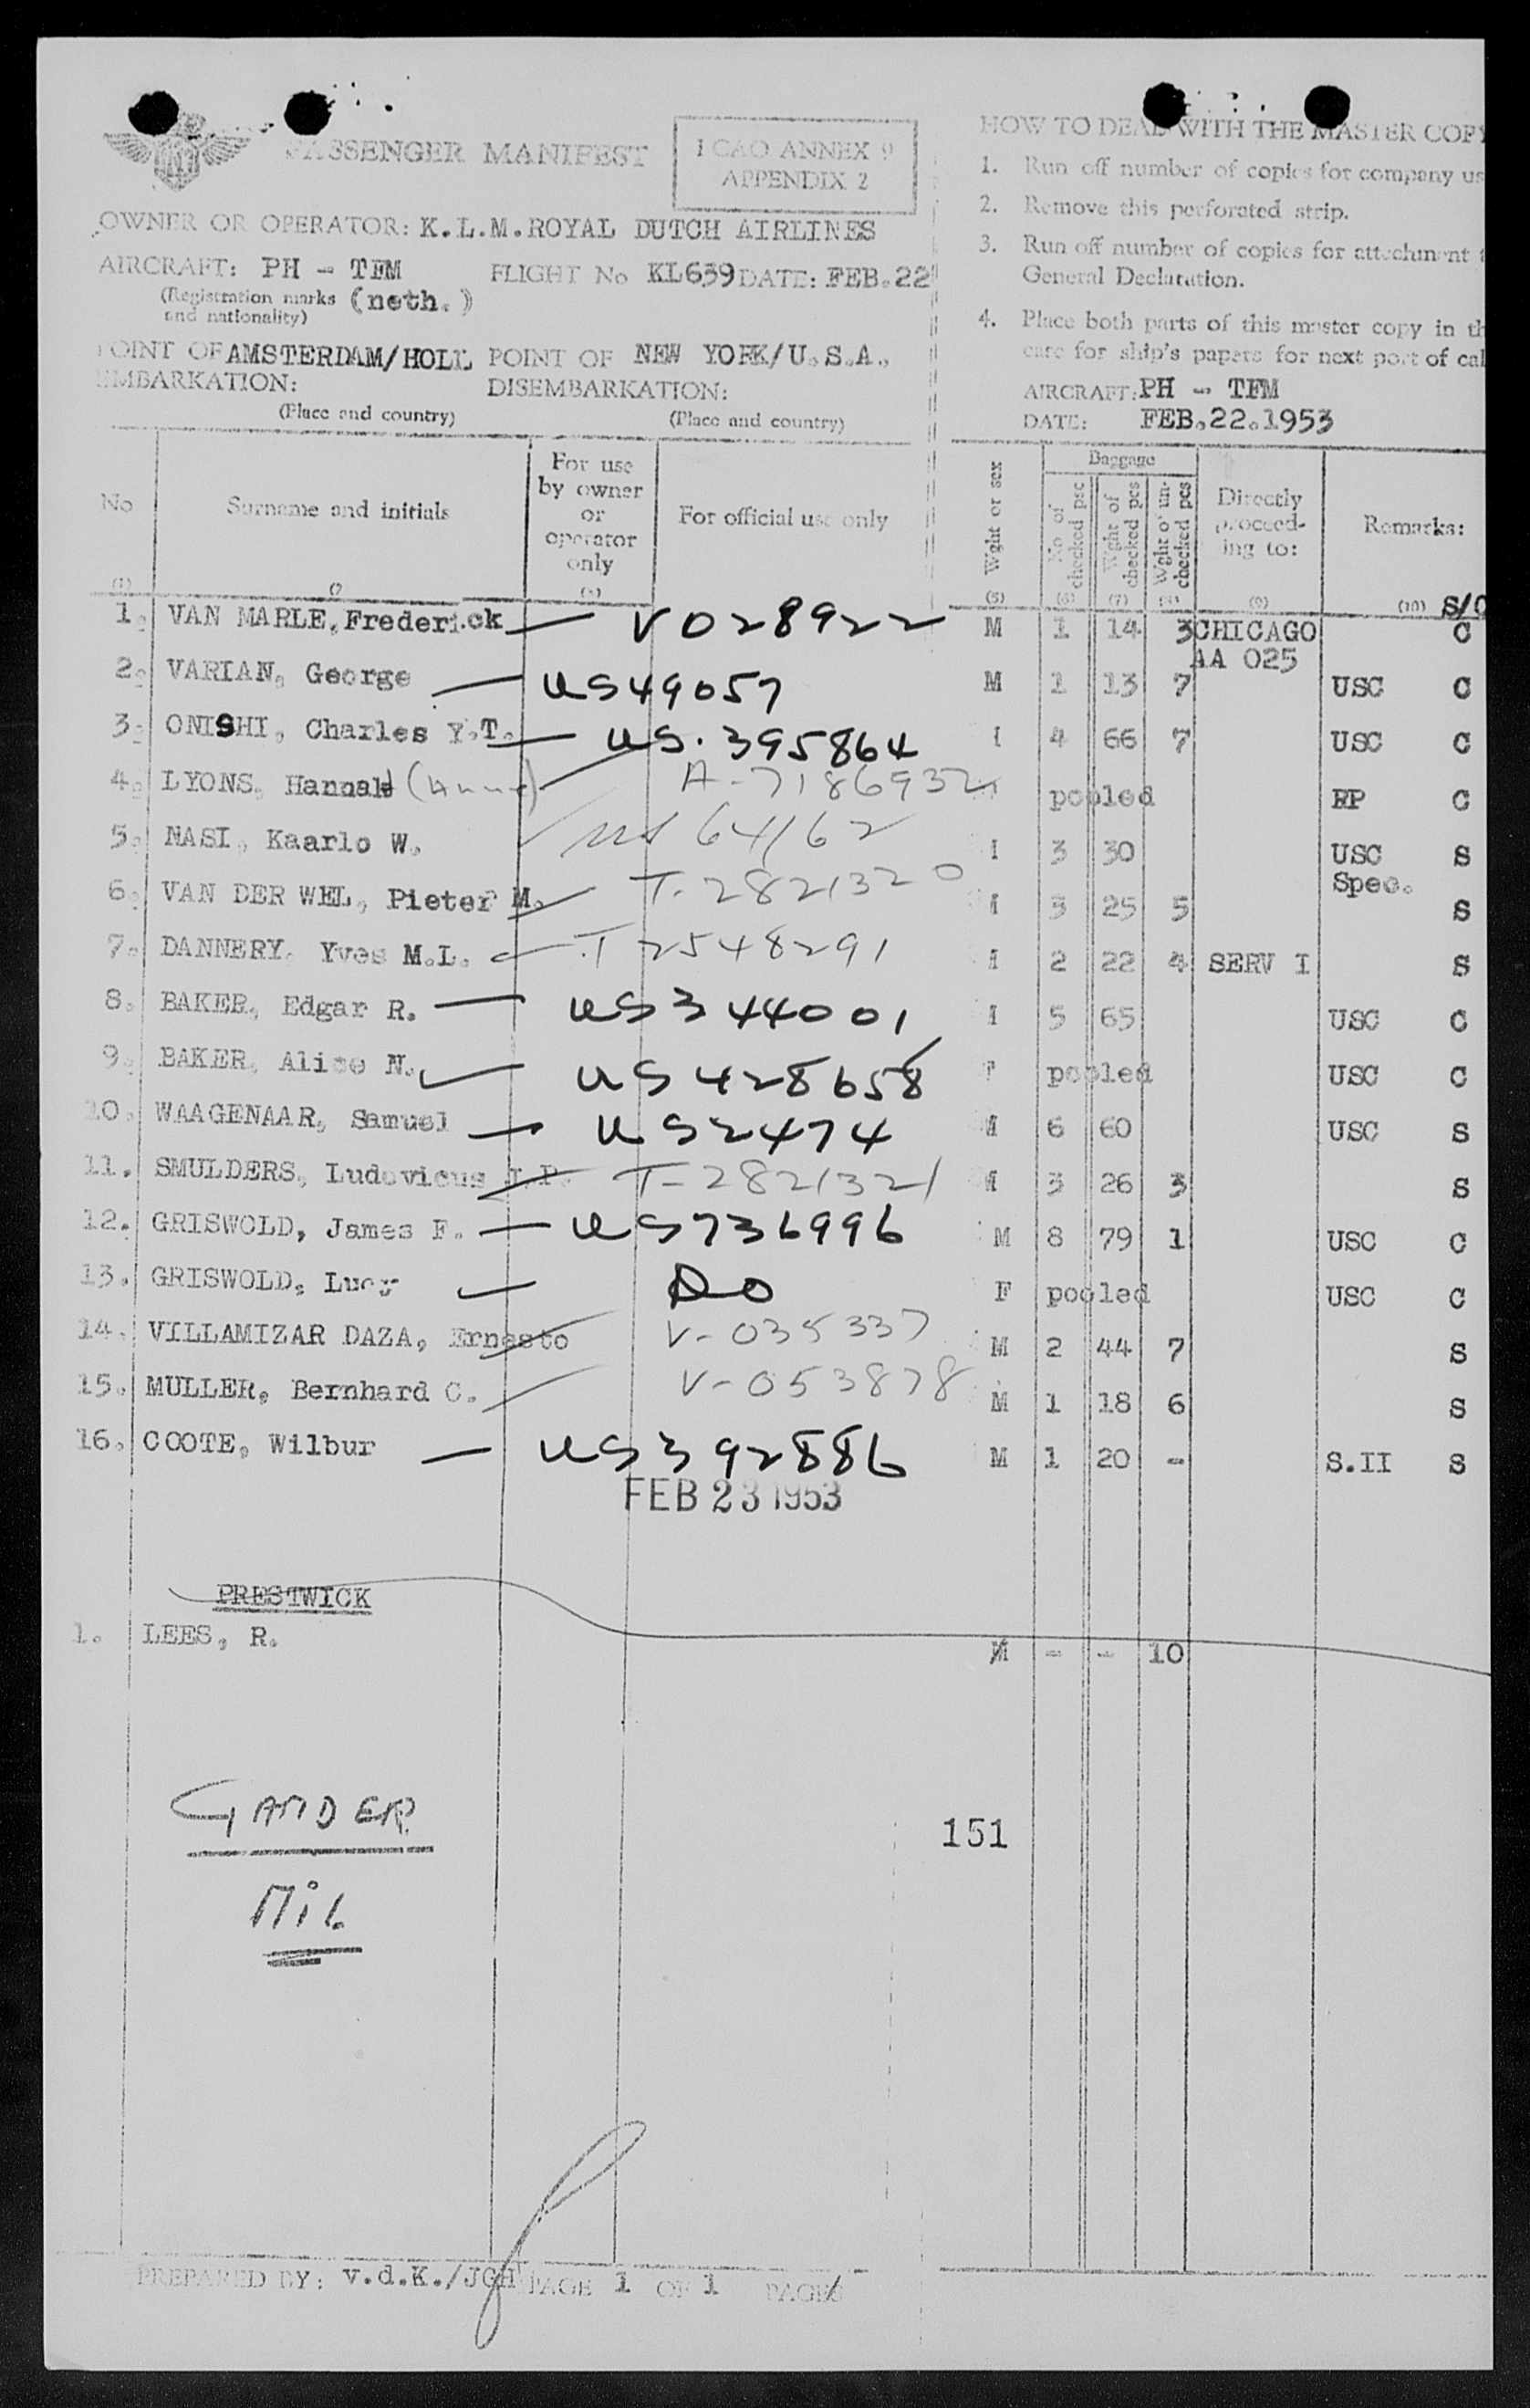 PASSENGER MANIFEST
ICAO ANNEX 9
APPENDIX 2
OWNER OR OPERATOR: K.L.M. ROYAL DUTCH AIRLINES
AIRCRAFT: PH - TFM FLIGHT No KL639 DATE: FEB.22
(Registration marks and nationality) (neth.)
POINT OF EMBARKATION: AMSTERDAM/HOLL POINT OF DISEMBARKATION: NEW YORK/U.S.A.,
(Place and country) (Place and country)
HOW TO DEAL WITH THE MASTER COPY
1. Run off number of copies for company us
2. Remove this perforated strip.
3. Run off number of copies for attachment t
General Declaration.
4. Place both parts of this master copy in th
care for ship's papers for next port of cal
AIRCRAFT: PH - TFM
DATE: FEB.22.1953
No Surname and initials For use by owner or operator only For official use only Wght or sex Baggage No of checked psc Wght of checked pcs Wght of un-checked pcs Directly proceed-ing to: Remarks:
(5) (6) (7) (9) (10) S/C
1. VAN MARLE, Frederick — V028922 M 1 14 3 CHICAGO C
AA 025
2. VARIAN, George — US49057 M 1 13 7 USC C
3. ONISHI, Charles Y.T. — US.395864 4 66 7 USC C
4. LYONS, (Anne) A-7186932 pooled RP C
5. NASI, Kaarlo W. US 64162 3 30 USC S
Spec.
6. VAN DER WEL, Pieter M. T-2821320 M 3 25 5 S
7. DANNERY, Yves M.L. T 2548291 2 22 4 SERV I S
8. BAKER, Edgar R. — US344001 5 65 USC C
9. BAKER, Alice N. US428658 F pooled USC C
10. WAAGENAAR, Samuel — US2474 M 6 60 USC S
11. SMULDERS, Ludovicus J.P. T-2821321 M 3 26 3 S
12. GRISWOLD, James F. — US736996 M 8 79 1 USC C
13. GRISWOLD, Lucy — DO F pooled USC C
14. VILLAMIZAR DAZA, Ernesto V-035337 M 2 44 7 S
15. MULLER, Bernhard C. V-053878 M 1 18 6 S
16. COOTE, Wilbur — US392886 M 1 20 - S.II S
FEB 23 1953
PRESTWICK
1. LEES, R. M - - 10
GANDER
151
NiL
PREPARED BY: v.d.K./JGH PAGE 1 OF 1 PAGES